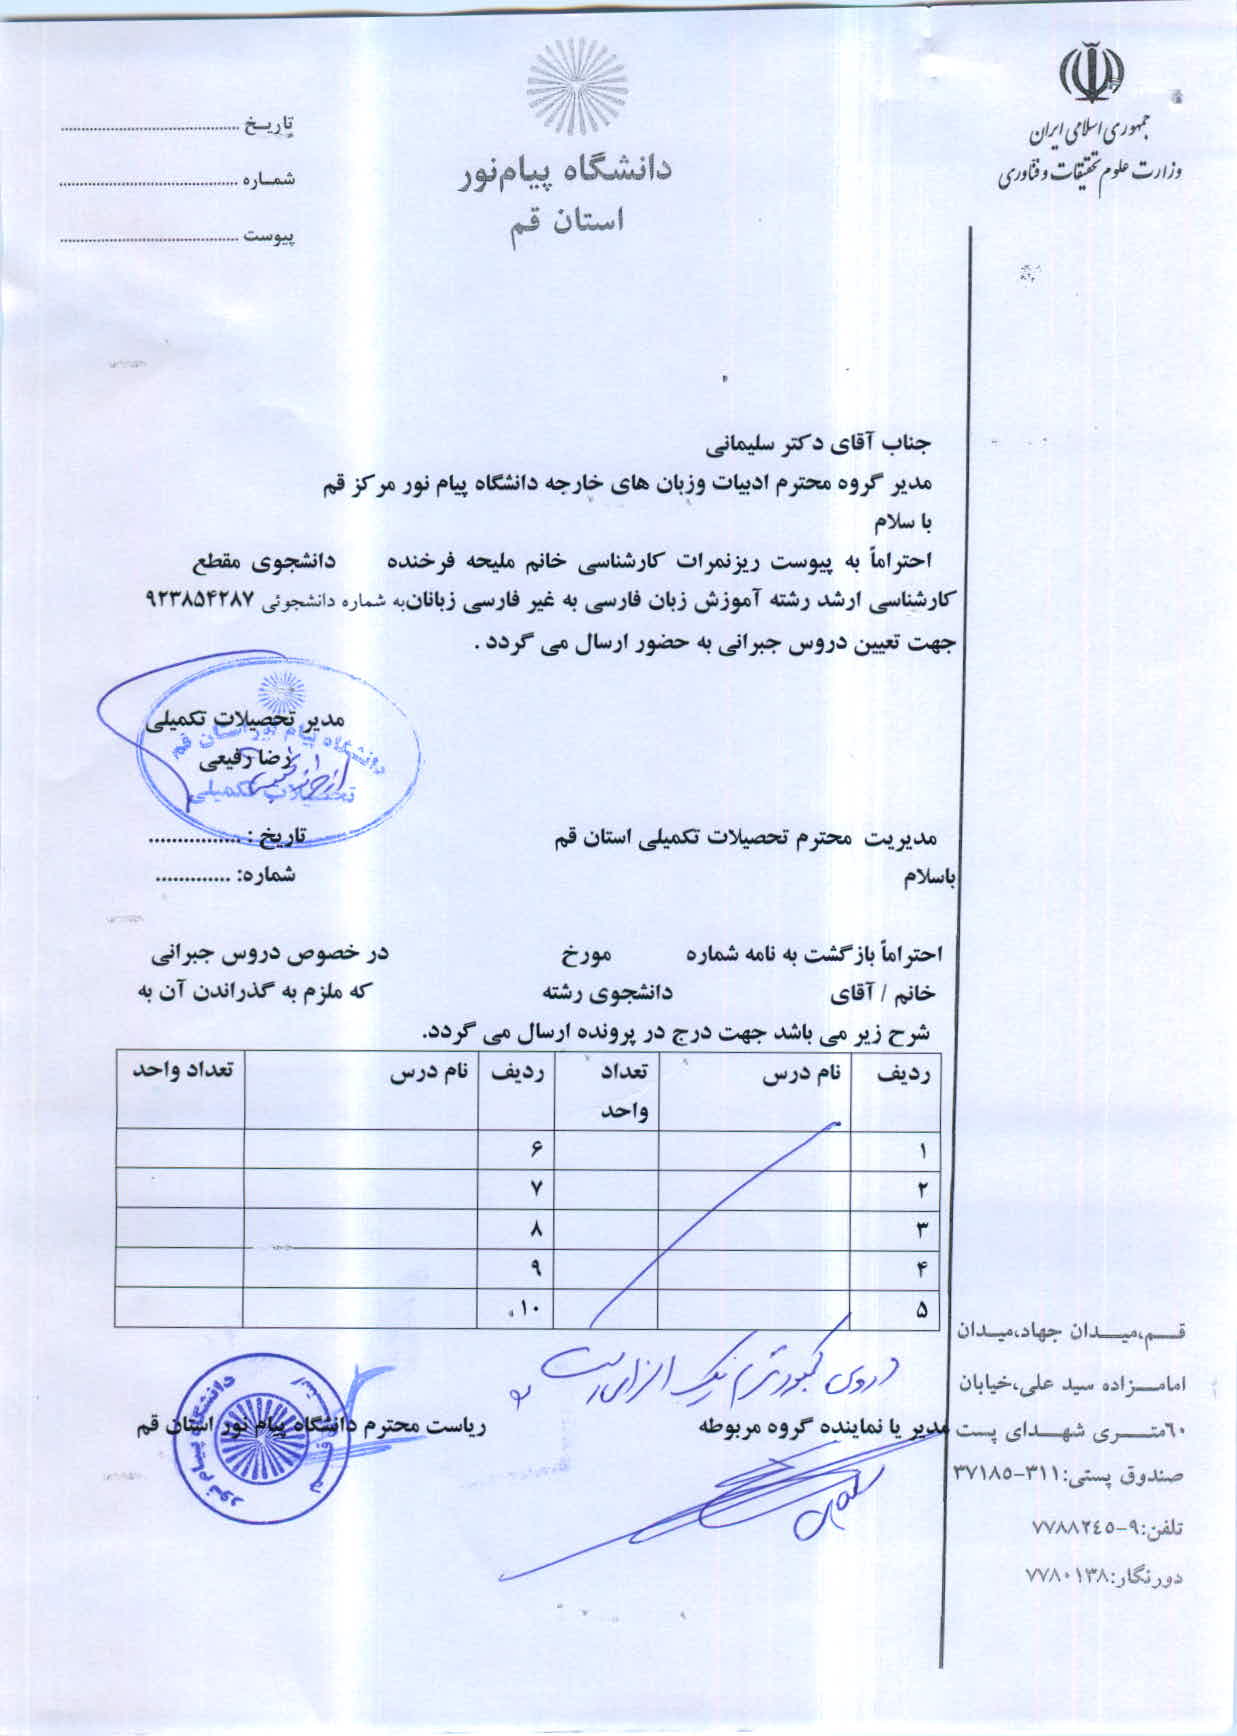 جمهوری اسلامی ایران
وزارت علوم تحقیقات و فناوری
دانشگاه پیام‌نور
استان قم
تاریـخ ........................................
شمـاره ........................................
پیوست ........................................
جناب آقای دکتر سلیمانی
مدیر گروه محترم ادبیات وزبان های خارجه دانشگاه پیام نور مرکز قم
با سلام
احتراماً به پیوست ریزنمرات کارشناسی خانم ملیحه فرخنده دانشجوی مقطع
کارشناسی ارشد رشته آموزش زبان فارسی به غیر فارسی زبانان‌به شماره دانشجوئی ۹۲۳۸۵۴۲۸۷
جهت تعیین دروس جبرانی به حضور ارسال می گردد .
مدیر تحصیلات تکمیلی
رضا رفیعی
دانشگاه پیام نور استان قم
تحصیلات تکمیلی
مدیریت محترم تحصیلات تکمیلی استان قم
تاریخ : ................
باسلام
شماره: .............
احتراماً بازگشت به نامه شماره مورخ در خصوص دروس جبرانی
خانم / آقای دانشجوی رشته که ملزم به گذراندن آن به
شرح زیر می باشد جهت درج در پرونده ارسال می گردد.
ردیف نام درس تعداد واحد ردیف نام درس تعداد واحد
۱ ۶
۲ ۷
۳ ۸
۴ ۹
۵ ۱۰
مدیر یا نماینده گروه مربوطه
ریاست محترم دانشگاه پیام نور استان قم
دانشگاه پیام نور
قـــم،میـــدان جهاد،میـدان
امامـــزاده سید علی،خیابان
٦٠متـــری شهـــدای پست
صندوق پستی:۳۱۱-۳۷۱۸۵
تلفن:۹-۷۷۸۸۲٤٥
دورنگار:۷۷۸۰۱۳۸